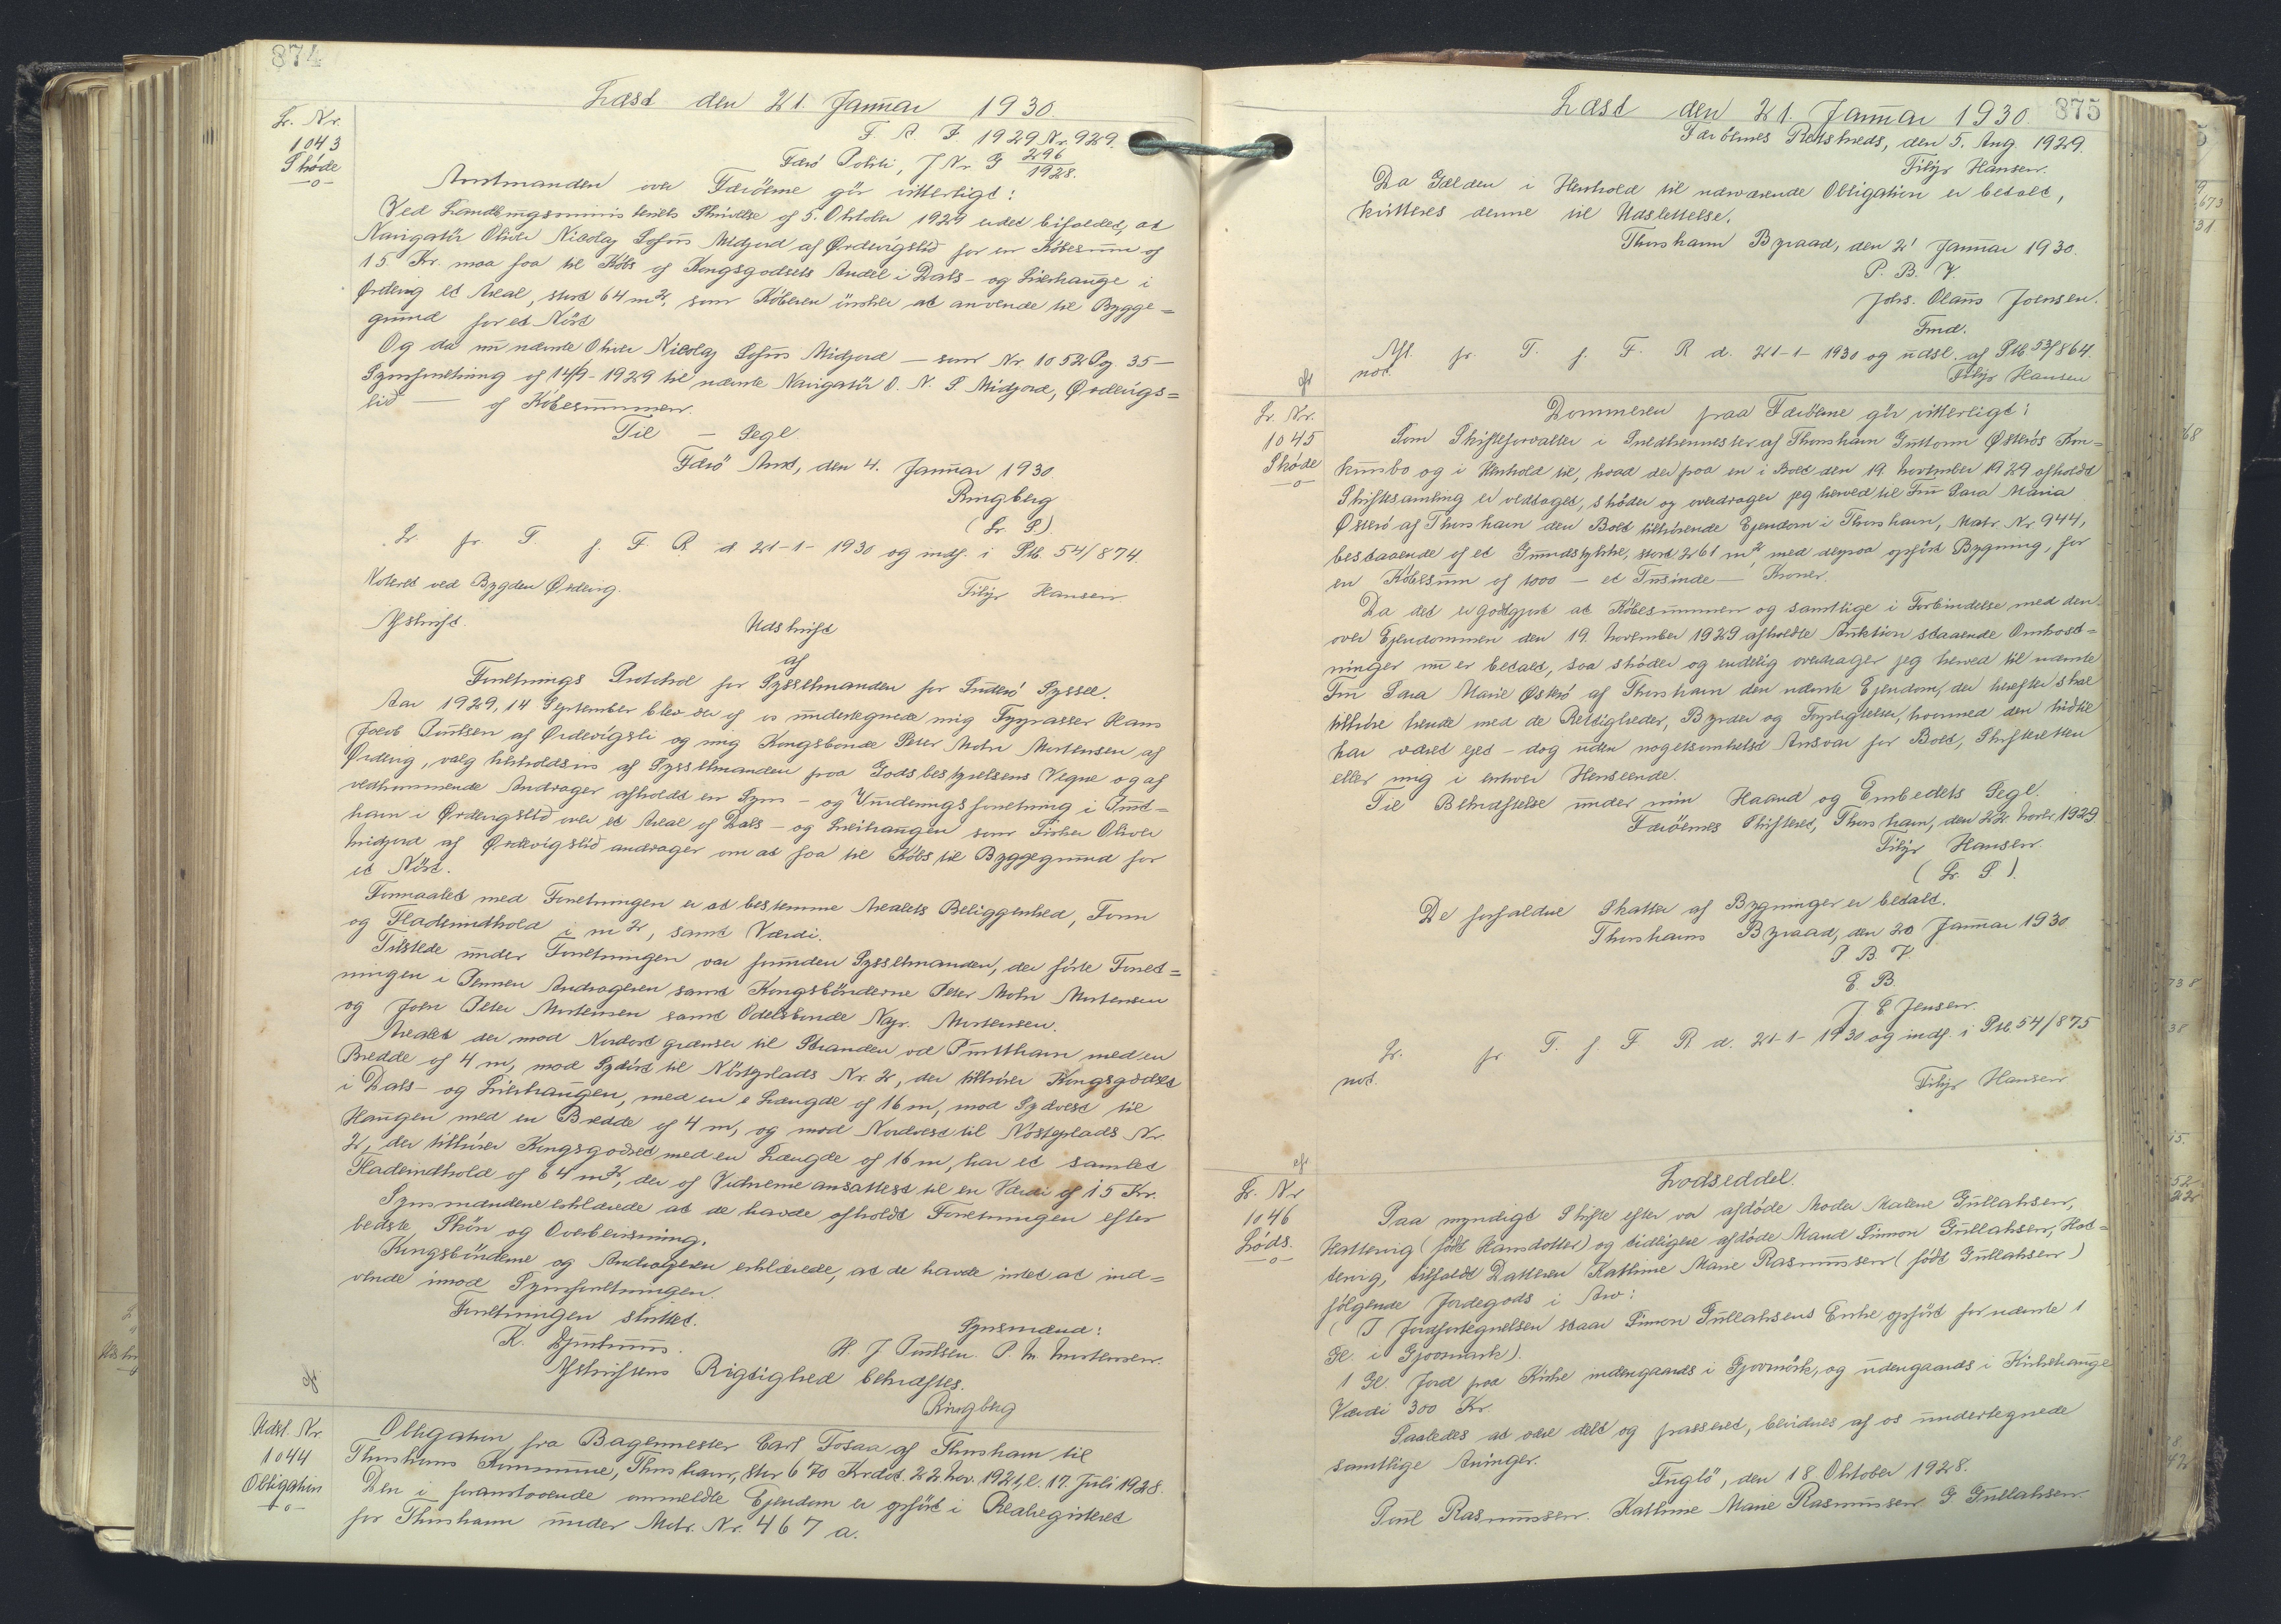 874
Læst den 21. Januar 1930.
F. A. J. 1929 Nr. 929.
Færø Politi, J. Nr. G 296/1928.
L. Nr.
1043
Skøde
—o—
Amtmanden over Færöerne gör vitterligt:
Ved Landbrugsministeriets Skrivelse af 5. Oktober 1929 er det bifaldet, at
Navigatör Oliver Nicolaj Sofus Midjord af Ördevigslid for en Köbesum af
15 Kr. maa faa til Köbs af Kongsgodsets Andel i Dals- og Lidehauge i
Ördevig et Areal, stort 64 m², som Köberen önsker at anvende til Bygge=
grund for et Nöst
Og da nu nævnte Oliver Nicolaj Sofus Midjord — som Nr. 1052 Pg. 35 —
Synsforretning af 14/9-1929 til nævnte Navigatör O. N. S. Midjord, Ördevigs=
lid — af Köbesummen.
Til — Segl.
Færö Amt, den 4. Januar 1930.
Ringberg
(L. S.)
L. fr. T. f. F. R. d. 21-1-1930 og indf. i Ptb. 54/874.
Noteret ved Bygden Ördevig.
Filip Hansen
Afskrift.
Udskrift
af
Forretnings Protokol for Sysselmanden for Suderö Syssel.
Aar 1929, 14 September blev der af os undertegnede mig Fyrpasser Hans
Jacob Poulsen af Ördevigsli og mig Kongsbonde Peter Mohr Mortensen af
Ördevig, valg henholdsvis af Sysselmanden paa Godsbestyrelsens Vegne og af
vedkommende Andrager afholdt en Syns- og Vurderingsforretning i
ham i Ördevigslid over et Areal af Dals- og Lidehaugen som Fisker Oliver
Midjord af Ördevigslid andrager om at faa til Köbs til Byggegrund for
et Nöst.
Formaalet med Forretningen er at bestemme Arealets Beliggenhed, Form
og Fladeindhold i m², samt Værdi.
Tilstede under Forretningen var foruden Sysselmanden, der förte Forret=
ningen i Pennen Andrageren samt Kongsbönderne Peter Mohr Mortensen
og Joen Peter Mortensen samt Odelsbonde Napr. Mortensen.
Arealet der mod Nordost grænser til Stranden ved med en
Bredde af 4 m, mod Sydöst til Nöstplads Nr. 2, der tilhörer Kongsgodset
i Dals- og Lidehaugen, med en e Længde af 16 m, mod Sydvest til
Haugen med en Bredde af 4 m, og mod Nordvest til Nöstplads Nr.
2, der tilhörer Kongsgodset med en Længde af 16 m, har et samlet
Fladeindhold af 64 m², der af Vidnerne ansattest til en Værdi af 15 Kr.
Synsmændene erklærede at de havde afholdt Forretningen efter
bedste Skön og Overbevisning.
Kongsbönderne og Andrageren erklærede, at de havde intet at ind=
vende imod Synsforretningen.
Forretningen sluttet.
K. Djurhuus.
Synsmænd:
H. J. Poulsen. P. M. Mortensen.
Afskriftens Rigtighed bekræftes.
Ringberg
Udsl. Nr.
1044
Obligation
—o—
Obligation fra Bagermester Carl Fosaa af Thorshavn til
Thorshavns Kommune, Thorshavn, stor 670 Kr. dat. 22. Nov. 1921, l. 17. Juli 1928.
Den i foranstaaende anmeldte Ejendom er opfört i Realregisteret
for Thorshavn under Matr. Nr. 467 a.
875
Læst den 21. Januar 1930
Færöernes Retskreds, den 5. Aug. 1929.
Filip Hansen.
Da Gælden i Henhold til nærværende Obligation er betalt,
kvitteres denne til Udslettelse.
Thorshavn Byraad, den 2' Januar 1930.
P. B. V.
Johs. Olaus Joensen.
Fmd.
Afl. fr. T. f. F. R. d. 21-1-1930 og udsl. af Ptb. 53/864.
not.
Filip Hansen
L. Nr.
1045
Skøde
—o—
Dommeren paa Færöerne gör vitterligt:
Som Skifteforvalter i Snedkermester af Thorshavn Guttorm Österös Kon=
kursbo og i Henhold til, hvad der paa en i Boet den 19. November 1929 afholdt
Skiftesamling er vedtaget, sköder og overdrager jeg herved til Fru Sara Maria
Österö af Thorshavn den Boet tilhörende Ejendom i Thorshavn, Matr. Nr. 944,
bestaaende af et Grundstykke, stort 261 m², med derpaa opfört Bygning, for
en Köbesum af 1000 — et Tusinde — Kroner.
Da det er godtgjort at Köbesummen og samtlige i Forbindelse med den
over Ejendommen den 19. November 1929 afholdte Auktion staaende Omkost=
ninger nu er betalt, saa sköder og endelig overdrager jeg herved til nævnte
Fru Sara Marie Österö af Thorshavn den nævnte Ejendom, der herefter skal
tilhöre hende med de Rettigheder, Byrder og Forpligtelser, hvormed den hidtil
har været ejet – dog uden nogetsomhelst Ansvar for Boet, Skifteretten
eller mig i enhver Henseende.
Til Bekræftelse under min Haand og Embedets Segl.
Færöernes Skifteret, Thorshavn, den 22. Novbr. 1929.
Filip Hansen.
(L. S.)
De forfaldne Skatter af Bygninger er betalt.
Thorshavns Byraad, den 20 Januar 1930
P. B. V.
E. B.
J. E. Jensen.
L. fr. T. f. F. R. d. 21-1-1930 og indf. i Ptb. 54/875
not.
Filip Hansen
L. Nr.
1046
Lóds.
—o—
Lodseddel.
Paa myndigt Skifte efter vor afdöde Moder Malene Gullaksen,
Hattervig (födt Hansdotter) og tidligere afdöde Mand Simon Gullaksen, Hat=
tervig, tilfaldt Datteren Kathrine Marie Rasmussen (födt Gullaksen)
fölgende Jordegods i Arv:
(I Jordfortegnelsen staar Simon Gullaksens Enke opfört for nævnte 1
Gl. i Gjovmark).
1 Gl. Jord paa Kirke indengaards i Gjovmörk, og udengaards i Kirkehauge
Værdi 300 Kr.
Saaledes at være delt og passeret, bevidnes af os undertegnede
samtlige Arvinger.
Fuglö, den 18 Oktober 1928.
Poul Rasmussen. Kathrine Marie Rasmussen G Gullaksen